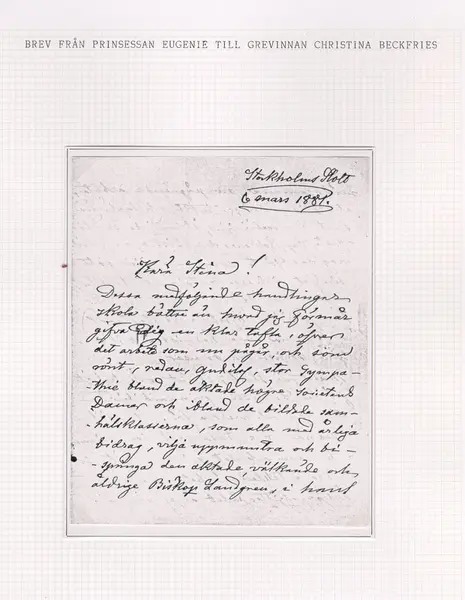 BREV FRÅN PRINSESSAN EUGENIE TILL GREVINNAN CHRISTINA BECKFRIES
Stockholms Slott
6 mars 1881.
Kära Stina!
Dessa medföljande handlingar
skola bättre än hvad jag förmår
gifva dig en klar tafla, öfver
det arbete som nu pågår, och som
rönt, redan, gudilof, stor Sympa-
thie bland de aktade högre Societens
Damer och ibland de bildade sam-
hälsklasserna, som alla med årliga
bidrag, vilja uppmuntra och bi-
-springa den aktade, välkände och
åldrige Biskop Landgren, i hans